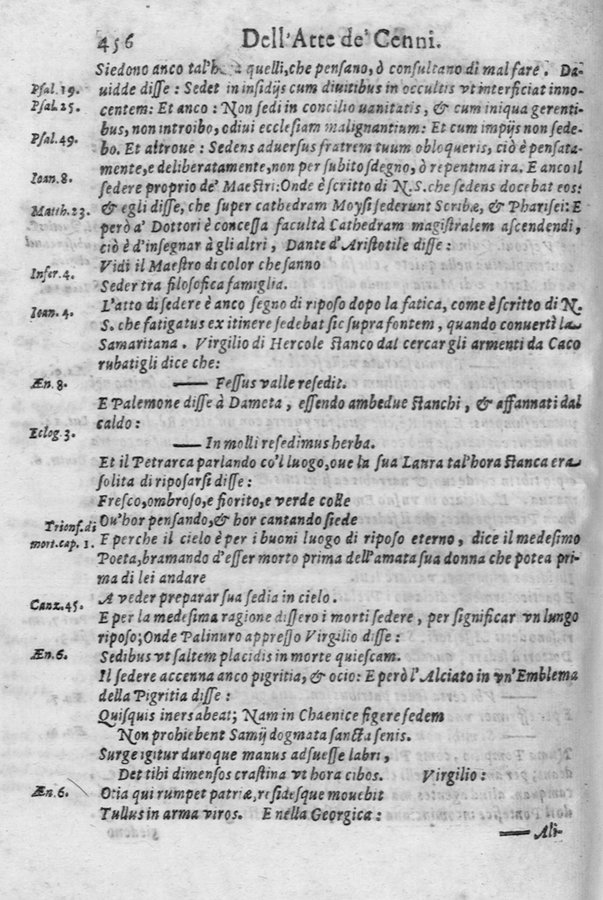 456 Dell'Arte de' Cenni.
Siedono anco tal'h a quelli, che pensano, ò consultano di mal fare. Da-
uidde disse: Sedet in insidijs cum diuitibus in occultis vt interficiat inno-
Psal. 19.
centem: Et anco: Non sedi in concilio uanitatis, & cum iniqua gerenti-
Psal. 25.
bus, non introibo, odiui ecclesiam malignantium: Et cum impijs non sede-
Psal. 49.
bo. Et altroue: Sedens aduersus fratrem tuum obloqueris, ciò è pensata-
mente, e deliberatamente, non per subito sdegno, ò repentina ira. E anco il
Ioan. 8.
sedere proprio de' Maestri: Onde è scritto di N.S. che sedens docebat eos:
Matth. 23.
& egli disse, che super cathedram Moysi sederunt Scribæ, & Pharisei: E
però a' Dottori è concessa facultà Cathedram magistralem ascendendi,
ciò è d'insegnar à gli altri, Dante d'Aristotile disse:
Infer. 4.
Vidi il Maestro di color che sanno
Seder tra filosofica famiglia.
Ioan. 4.
L'atto di sedere è anco segno di riposo dopo la fatica, come è scritto di N.
S. che fatigatus ex itinere sedebat sic supra fontem, quando conuertì la
Samaritana. Virgilio di Hercole stanco dal cercar gli armenti da Caco
rubatigli dice che:
Æn. 8.
— Fessus valle resedit.
E Palemone disse à Dameta, essendo ambedue stanchi, & affannati dal
caldo:
Eclog. 3.
— In molli resedimus herba.
Et il Petrarca parlando co'l luogo, oue la sua Laura tal'hora stanca era
solita di riposarsi disse:
Fresco, ombroso, e fiorito, e verde colle
Trionf. di
Ou'hor pensando, & hor cantando siede
mort. cap. 1.
E perche il cielo è per i buoni luogo di riposo eterno, dice il medesimo
Poeta, bramando d'esser morto prima dell'amata sua donna che potea pri-
ma di lei andare
Canz. 45.
A veder preparar sua sedia in cielo.
E per la medesima ragione dissero i morti sedere, per significar vn lungo
riposo; Onde Palinuro appresso Virgilio disse:
Æn. 6.
Sedibus vt saltem placidis in morte quiescam.
Il sedere accenna anco pigritia, & ocio: E però l'Alciato in vn'Emblema
della Pigritia disse:
Quisquis iners abeat; Nam in Chaenice figere sedem
Non prohiebent Samij dogmata sancta senis.
Surge igitur duroque manus adsuesse labri,
Det tibi dimensos crastina vt hora cibos. Virgilio:
Æn. 6.
Otia qui rumpet patriæ, residesque mouebit
Tullus in arma viros. E nella Georgica:
— Ali-